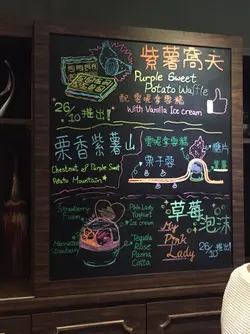 紫薯窩夫
Purple Sweet
Potato Waffle
配雲呢拿雪糕
With Vanilla Ice cream
26/10推出!
栗香紫薯山
Chestnut of Purple Sweet
Potato Mountain
雲呢拿雪糕
栗子蓉
Strawberry
Foam
Pink Lady
Yoghurt
Ice cream
Tequila
Rose
Panna
Cotta
草莓
泡沫
My
Pink
Lady
26/10推出!